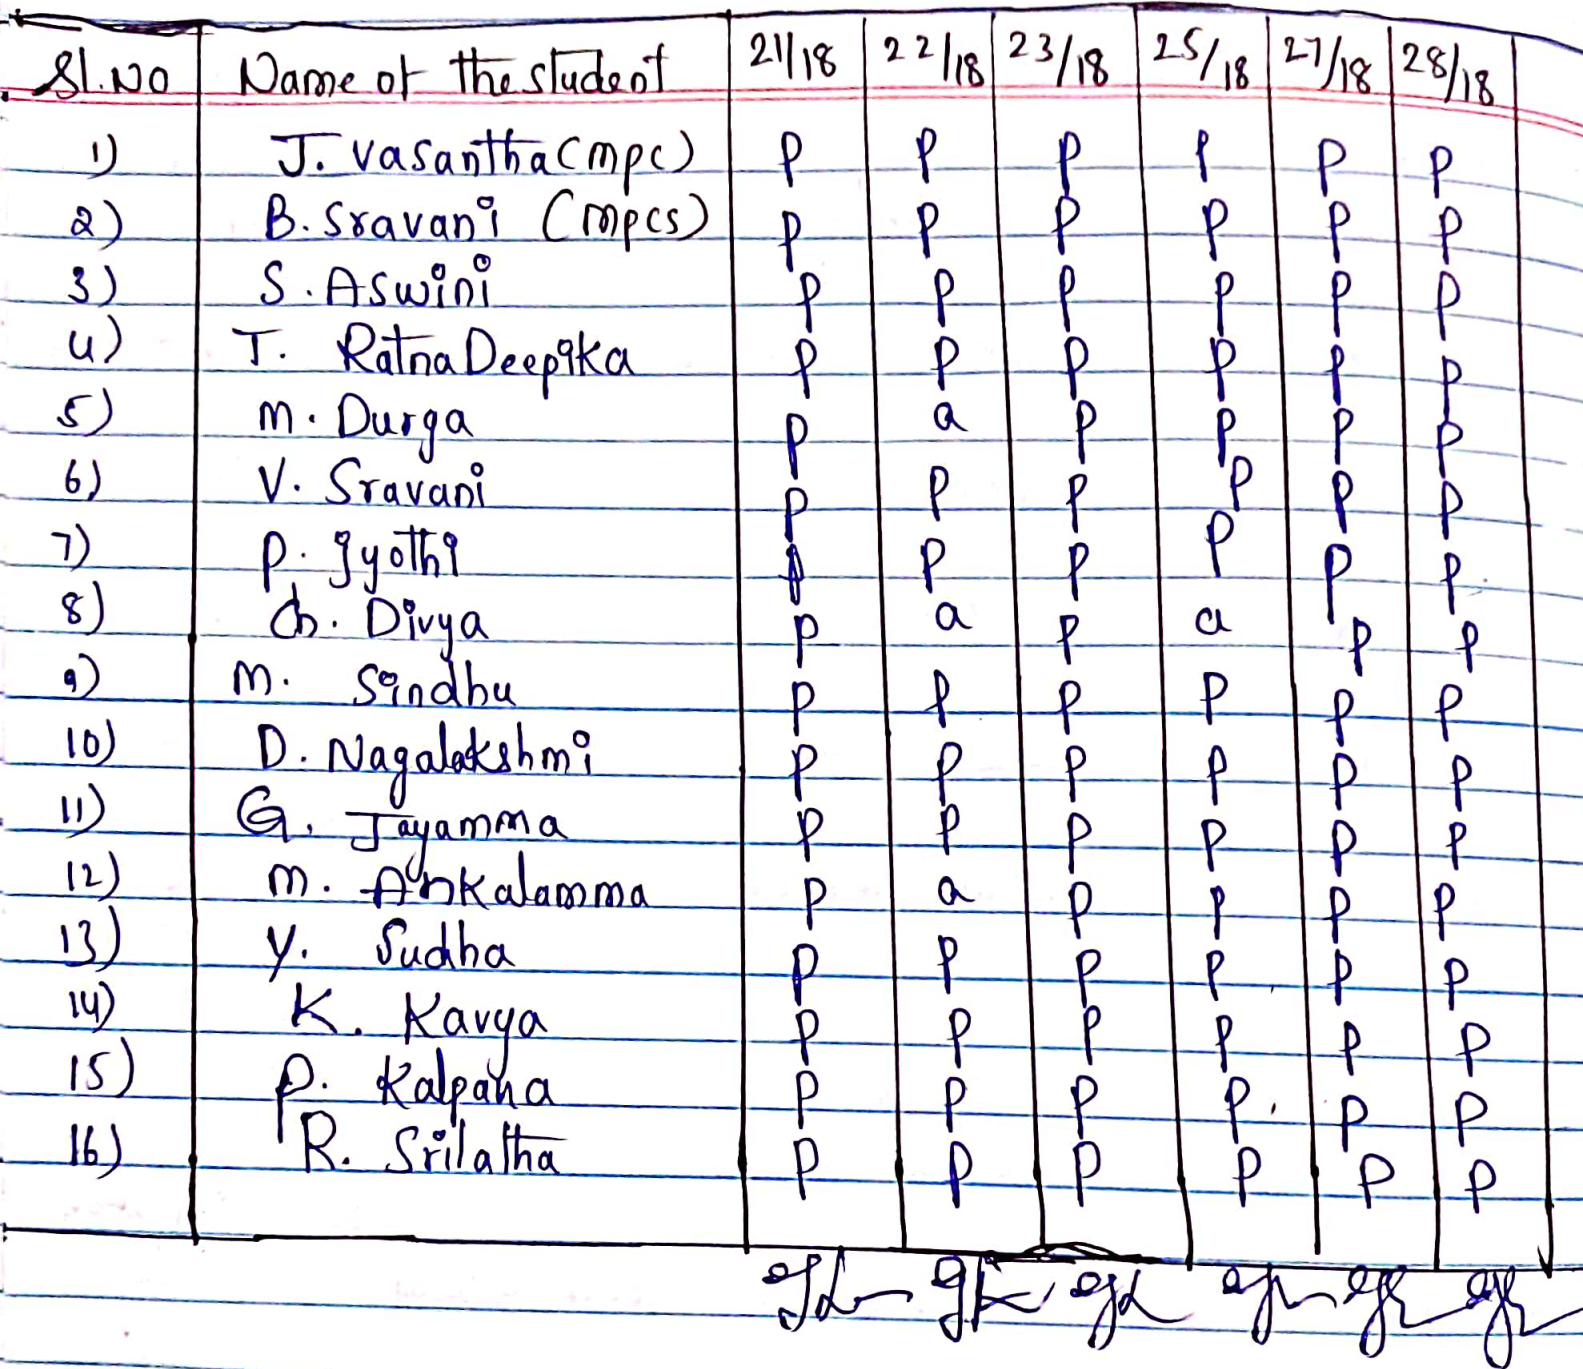 Sl.No Name of the student 21/18 22/18 23/18 25/18 27/18 28/18
1) J. Vasantha (mpc) P P P P P P
2) B. Sravani (mpcs) P P P P P P
3) S. Aswini P P P P P P
4) T. Ratna Deepika P P P P P P
5) M. Durga P a P P P P
6) V. Sravani P P P P P P
7) P. Jyothi P P P P P P
8) Ch. Divya P a P a P P
9) M. Sindhu P P P P P P
10) D. Nagalakshmi P P P P P P
11) G. Jayamma P P P P P P
12) M. Ankalamma P a P P P P
13) Y. Sudha P P P P P P
14) K. Kavya P P P P P P
15) P. Kalpana P P P P P P
16) R. Srilatha P P P P P P